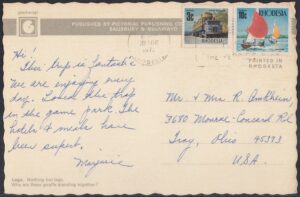 PUBLISHED BY PICTORIAL PUBLISHING CO
SALISBURY & BULAWAYO
3c
RHODESIA
10c
RHODESIA
PRINTED IN
RHODESIA
Hi!
This trip is fantastic
We are enjoying every
day. Loved the trip
in the game park. The
hotels & meals have
been superb.
Marjorie
Mr. & Mrs R.
3680 Monroe-Concord Rd
Troy, Ohio 45373
U.S.A.
Legs. Nothing but legs.
Why are these giraffe standing together?